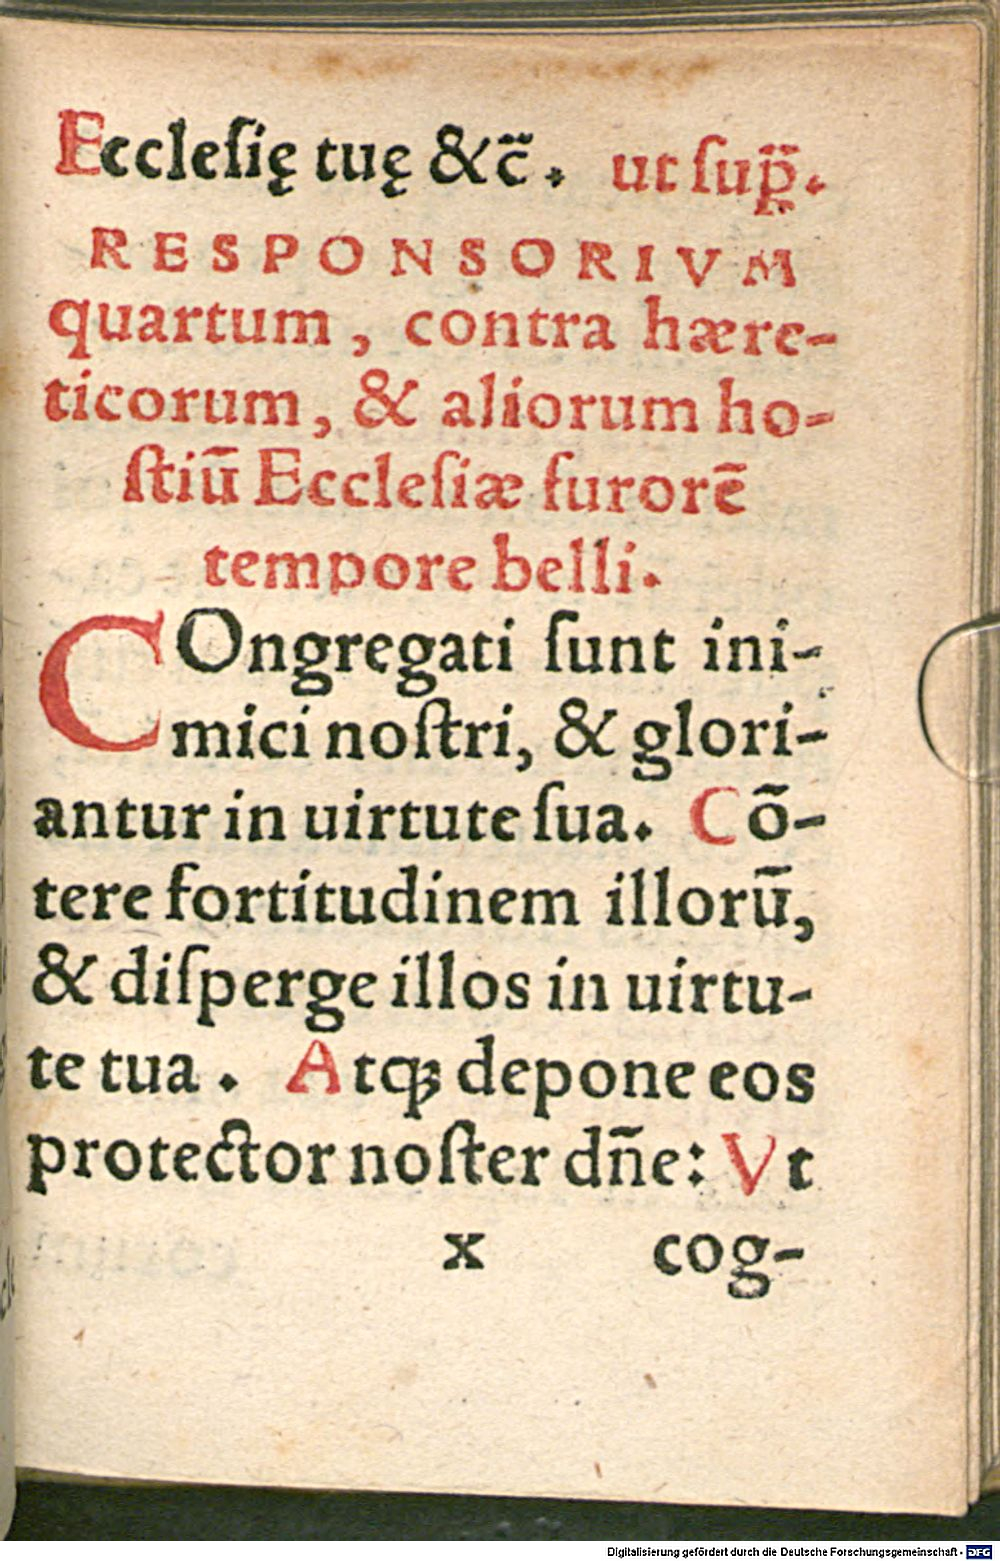 Eccleſię tuę &c̃. ut ſup̃.
RESPONSORIVM
quartum, contra hære-
ticorum, & aliorum ho-
ſtiũ Eccleſiæ furorẽ
tempore belli.
COngregati ſunt ini-
mici noſtri, & glori-
antur in uirtute ſua. Cõ-
tere fortitudinem illorũ,
& diſperge illos in uirtu-
te tua. Atqꝫ depone eos
protector noſter dñe: Vt
x cog-
Digitalisierung gefördert durch die Deutsche Forschungsgemeinschaft - DFG